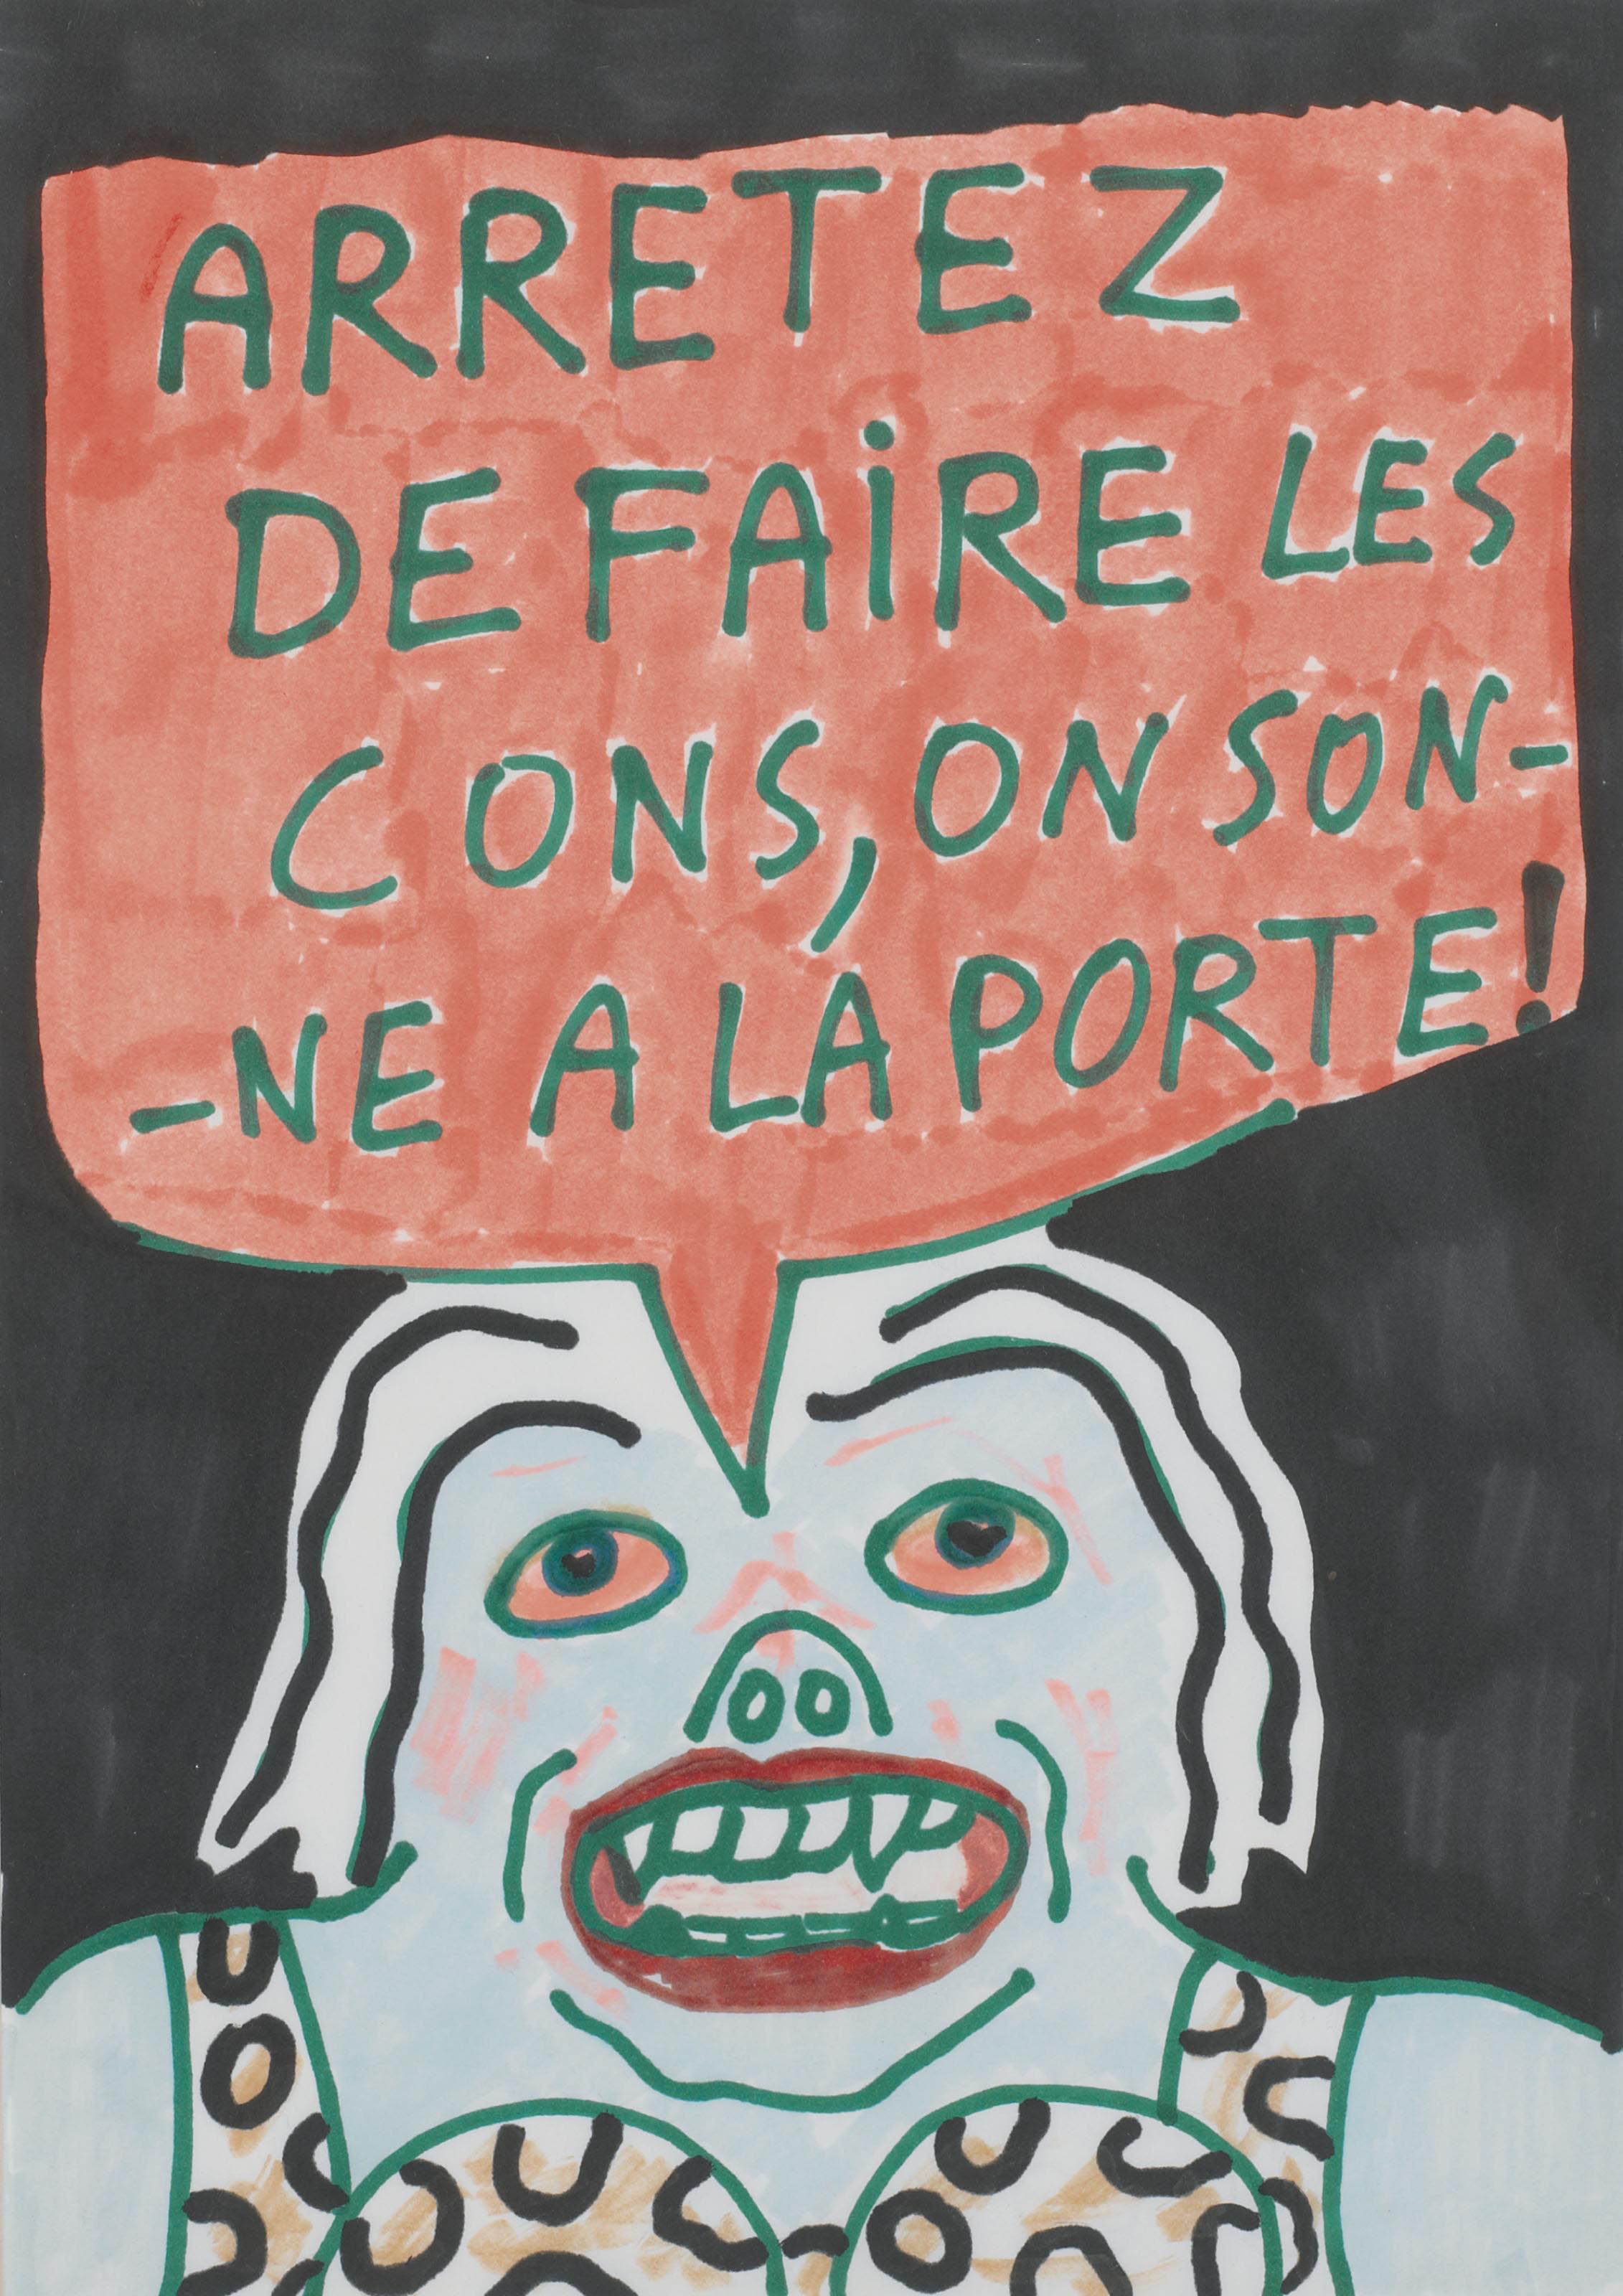 ARRETEZ
DE FAIRE LES
CONS, ON SON-
-NE A LA PORTE!